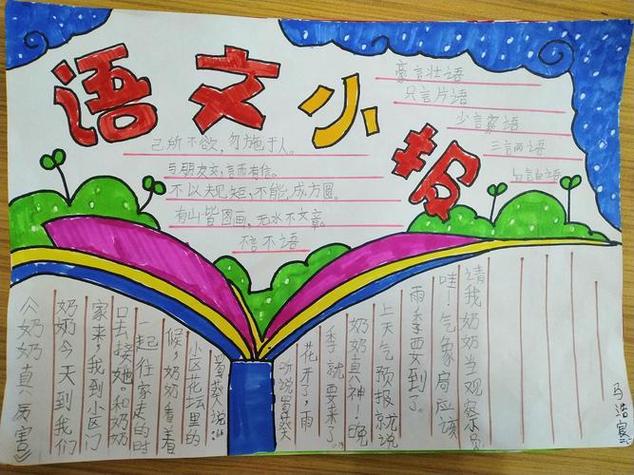 语文小报
豪言壮语
只言片语
少言寡语
三言两语
己所不欲,勿施于人。
与朋友交,言而有信。
不以规矩,不能成方圆。
有山皆图画,无水不文章。
不言不语
《奶奶真厉害》
奶奶今天到我们
家来,我到小区门
口去接她。和奶奶
一起往家走的时
候,奶奶看着
小区花坛里的
蜀葵说:“
听说蜀葵
花开了,雨
季就要来了。
奶奶真神!晚
上天气预报就说
雨季要到了。
哇!气象局应该
请我奶奶当观察员
马浩